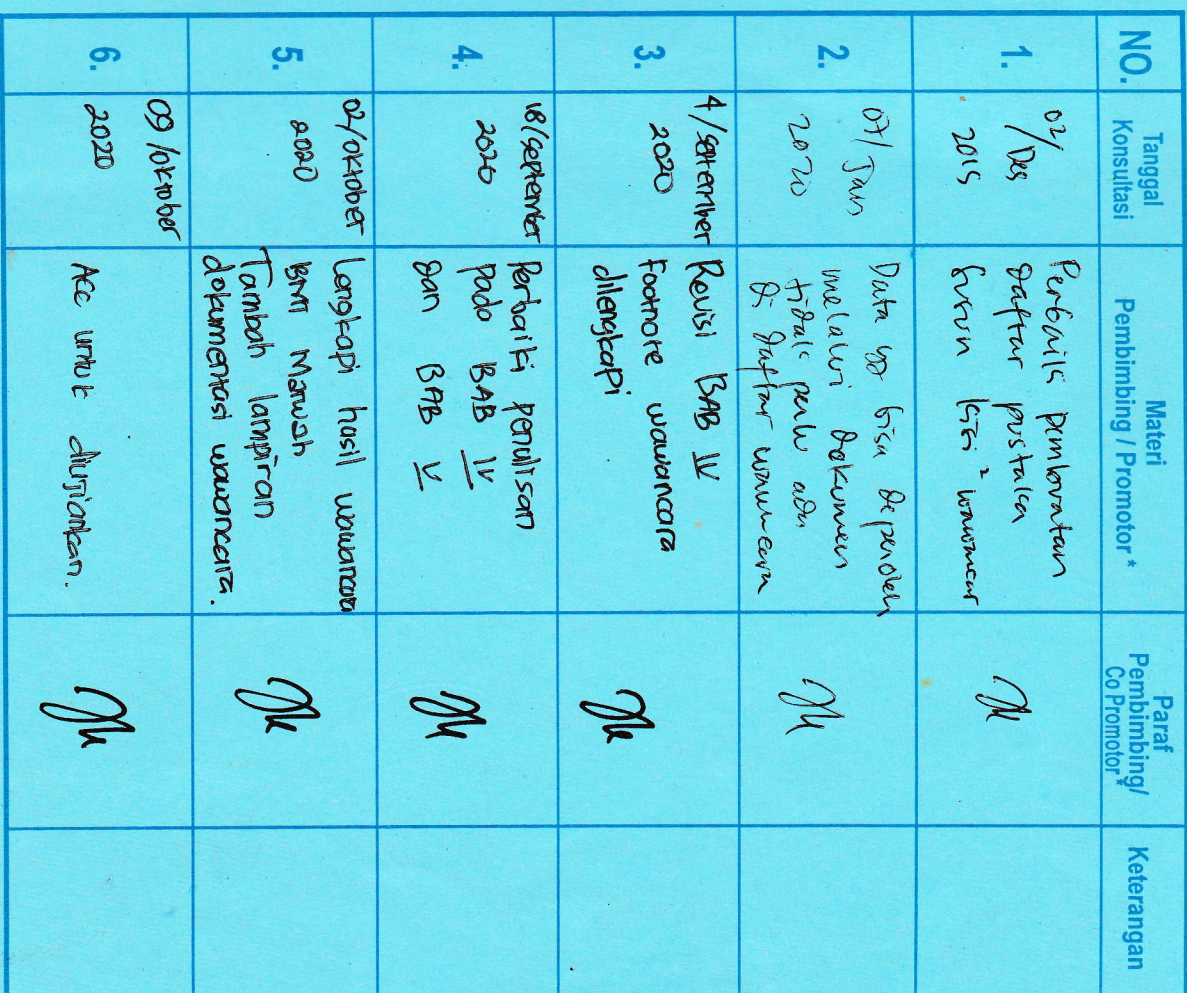 NO.
Tanggal
Konsultasi
Materi
Pembimbing / Promotor *
Paraf
Pembimbing/
Co Promotor*
Keterangan
1.
02/
/Des
2015
Perbaiki pembuatan
daftar pustaka
Susun kisi² wawancar
2.
07/ Jan
2020
Data yg bisa diperoleh
melalui dokumen
tidak perlu ada
di daftar wawancara
3.
4/september
2020
Revisi BAB IV
Footnote wawancara
dilengkapi
4.
18/september
2020
Perbaiki penulisan
pada BAB IV
dan BAB V
5.
02/oktober
2020
Lengkapi hasil wawancara
BMT Marwah
Tambah lampiran
dokumentasi wawancara.
6.
09/oktober
2020
Acc untuk diujiankan.